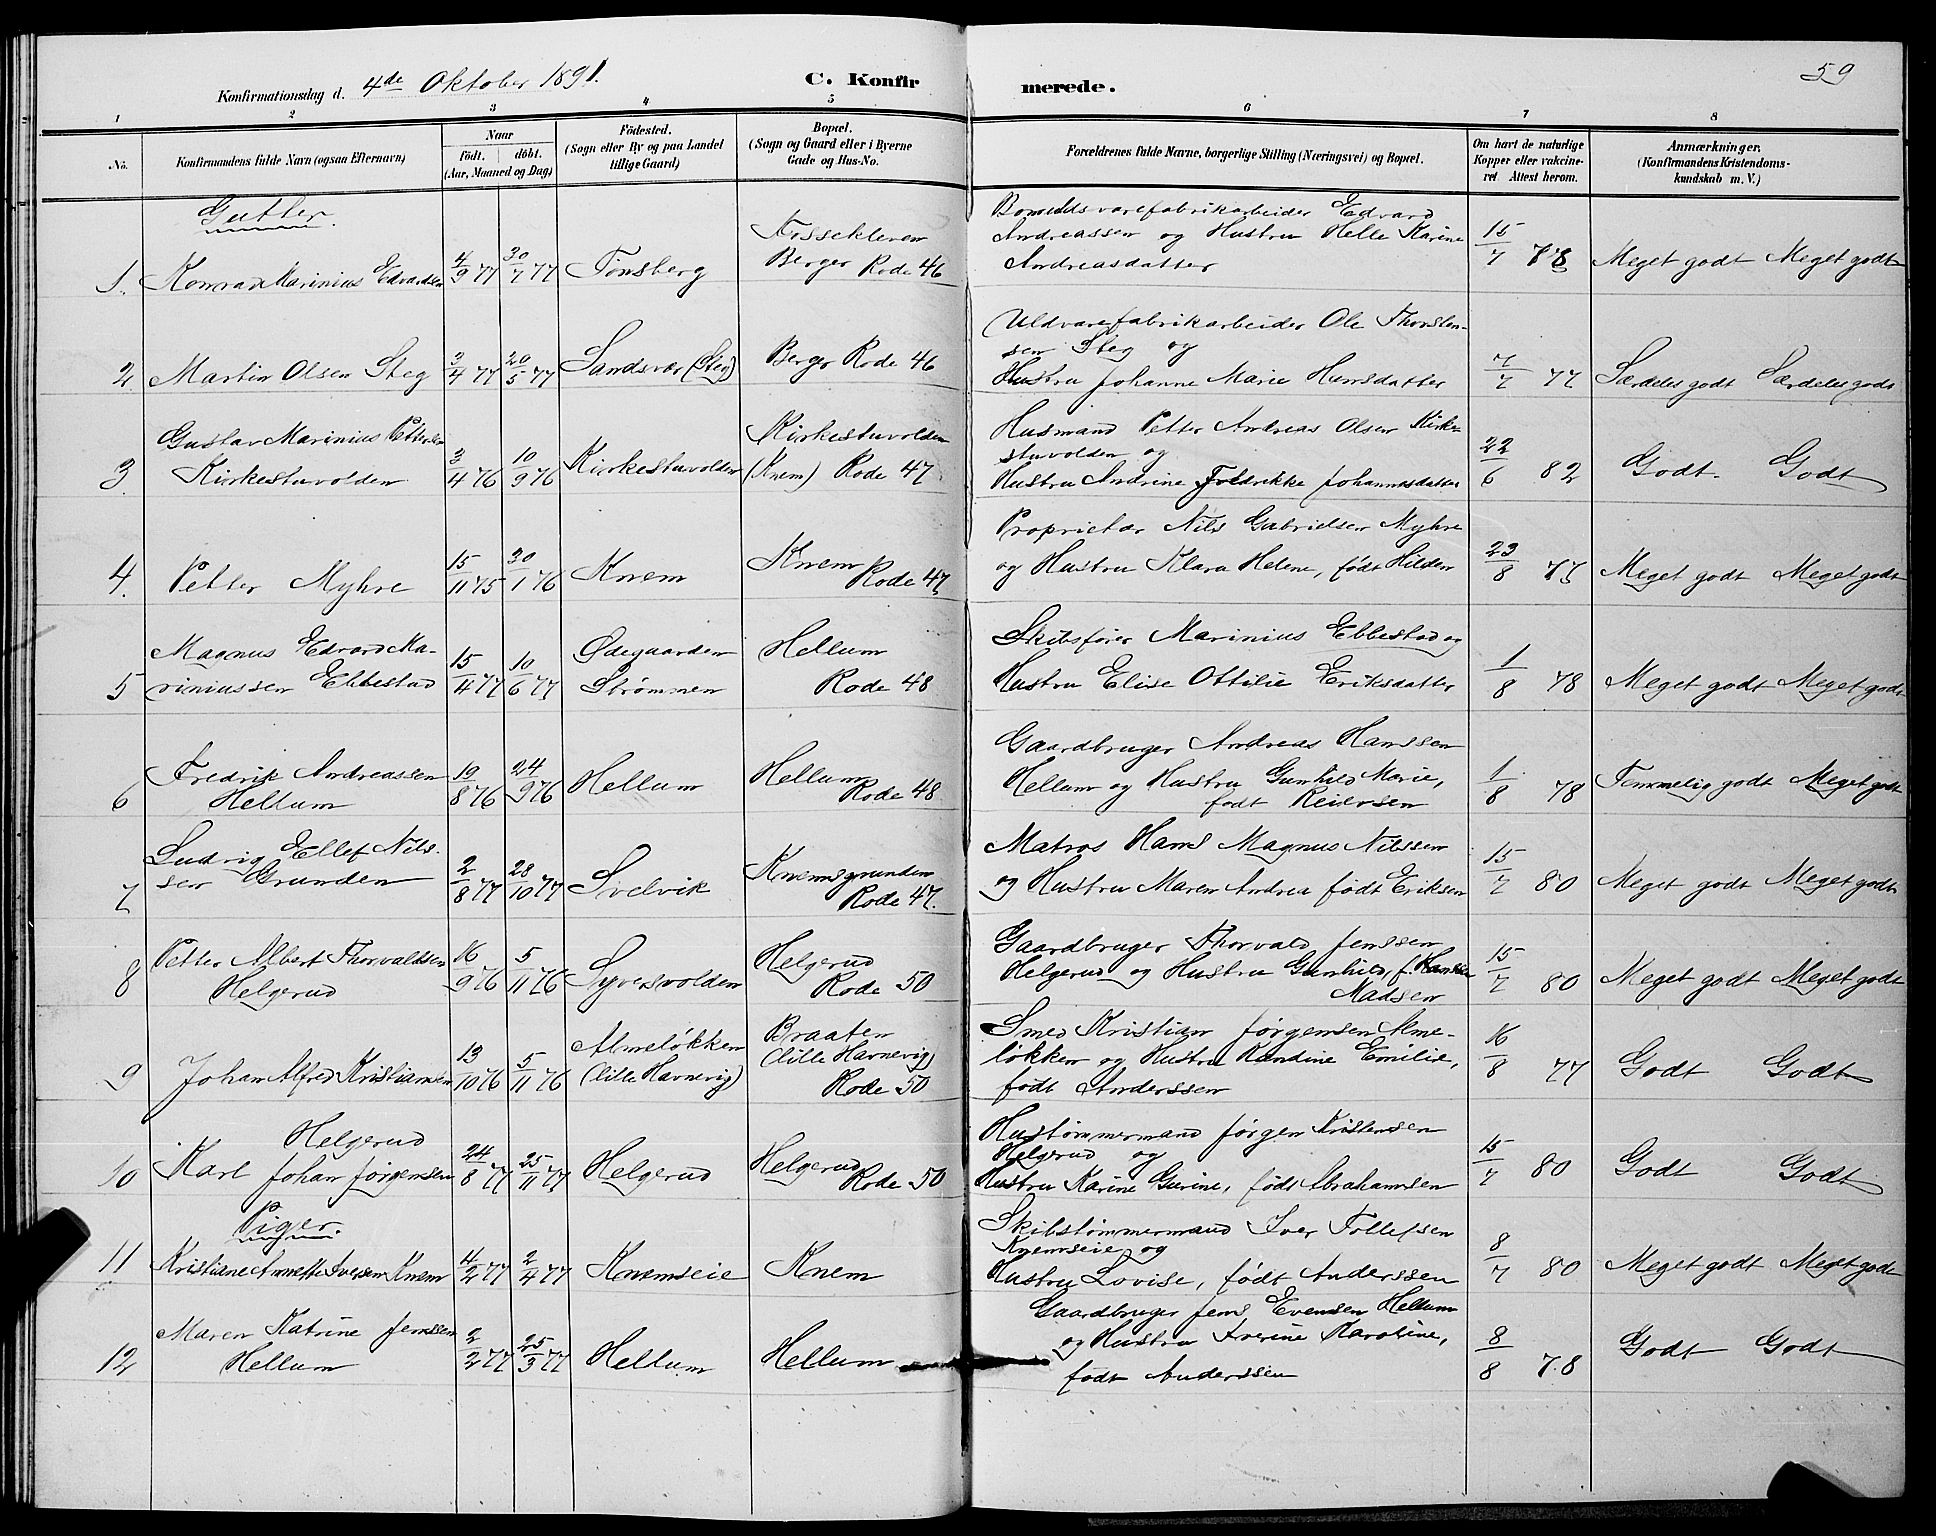 59
Konfirmationsdag d. 4de Oktober 1891.
C. Konfirmerede.
1 2 3 4 5 6 7 8
No.
Konfirmandens fulde Navn (ogsaa Efternavn)
Naar
födt. döbt.
(Aar, Maaned og Dag)
Födested.
(Sogn eller By og paa Landet
tillige Gaard)
Bopæl.
(Sogn og Gaard eller i Byerne
Gade og Hus-No.
Forældrenes fulde Navne, borgerlige Stilling (Næringsvei) og Bopæl.
Om havt de naturlige
Kopper eller vakcine-
ret Attest herom.
Anmærkninger.
(Konfirmandens Kristendoms-
kundskab m. V.)
Gutter.
1. Konrad Marinius Edvardsen
4/9 77 30/7 77
Tønsberg
Fossekleven
Berger Rode 46
Bomuldsvarefabrikarbeider Edvard
Andreassen og Hustru Helle Karine
Andreasdatter
15/7 78
Meget godt Meget godt
2 Martin Olsen Steg
3/4 77 20/5 77
Sandsvær (Steg)
Berger Rode 46
Uldvarefabrikarbeider Ole Thorsten-
sen Steg og
Hustru Johanne Marie Hansdatter
7/7 77
Særdeles godt Særdeles godt
3 Gustav Marinius Pettersen
Kirkestuvolden
3/4 76 10/9 76
Kirkestuvolden
Kirkestuvolden
(Knem) Rode 47
Husmand Petter Andreas Olsen Kirke-
stuvolden og
Hustru Andrine Fredrikke Johannesdatter
22/6 82
Godt. Godt
4. Petter Myhre
15/11 75 30/1 76
Knem
Knem
Rode 47
Proprietær Nils Gabrielsen Myhre
og Hustru Klara Helene, født Hilden
23/8 75
Meget godt Meget godt
5 Magnus Edvard Ma-
riniussen Ebbestad
15/4 77 10/6 77
Ødegaarden
Strømmen
Hellum
Rode 48
Skibsfører Marinius Ebbestad og
Hustru Elise Ottilie Eriksdatter
1/8 78
Meget godt Meget godt
6 Fredrik Andreassen
Hellum
19/8 76 24/9 76
Hellum
Hellum
Rode 48
Gaardbruger Andreas Hanssen
Hellum og Hustru Gunhild Marie,
født Reiersen
1/8 78
Temmelig godt Meget godt
7 Ludvig Ellef Nils-
sen Grunden
2/8 77 28/10 77
Svelvik
Knemsgrunden
Rode 47.
Matros Hans Magnus Nilssen
og Hustru Maren Andrea født Eriksen
15/7 80
Meget godt Meget godt
8 Petter Albert Thorvaldsen
Helgerud
16/9 76 5/11 76
Syversvolden
Helgerud
Rode 50
Gaardbruger Thorvald Jenssen
Helgerud og Hustru Gunhild, f. Hansen
Madsen
15/7 80
Meget godt Meget godt
9 Johan Alfred Kristiansen
13/10 76 5/11 76
Almeløkken
(lille Havnevig)
Braaten
(lille Havnevig)
Rode 50
Smed Kristian Jørgensen Alme-
løkken og Hustru Randine Emilie,
født Anderssen
16/8 77
Godt Godt
10 Helgerud
Karl Johan Jørgensen
24/8 77 25/11 77
Helgerud
Helgerud
Rode 50
Hustømmermand Jørgen Kristensen
Helgerud og
Hustru Karine Gurine, født Abrahamsen
15/7 80
Godt Godt
Piger.
11 Kristiane Annette Iversen Knem
4/2 77 2/4 77
Knemseie
Knem
Skibstømmermand Iver Tollefsen
Knemseie og
Hustru Lovise, født Anderssen
8/7 80
Meget godt Meget godt
12 Maren Katrine Jenssen
Hellum
2/2 77 25/3 77
Hellum
Hellum
Gaardbruger Jens Evensen Hellum
og Hustru Iverine Karoline,
født Anderssen
8/8 78
Godt Godt